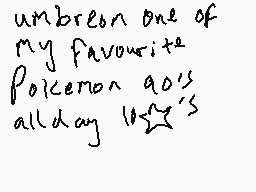 umbreon one of
my favourite
Pokemon 90's
all day 10☆'s